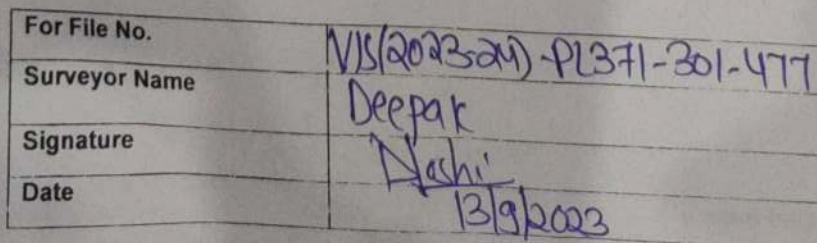 For File No. VIS(2023-24)-PL371-301-477
Surveyor Name Deepak
Signature Nashi
Date 13/9/2023